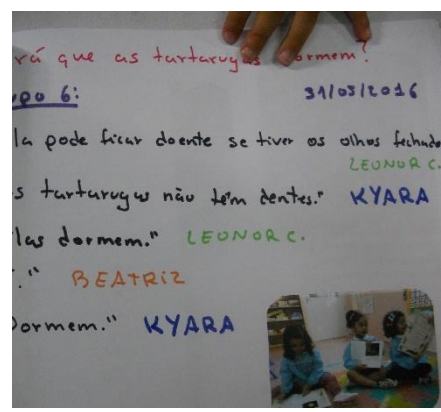 rá que as tartarugas dormem?
upo 6:
31/05/2016
la pode ficar doente se tiver os olhos fechado
LEONOR C.
s tartarugas não têm dentes." KYARA
las dormem." LEONOR C.
." BEATRIZ
Dormem." KYARA